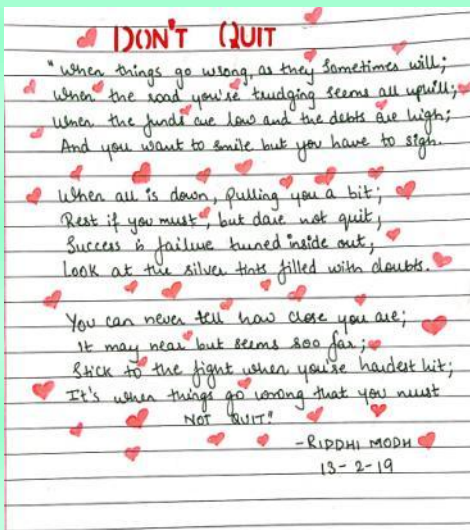 DON'T QUIT
"When things go wrong, as they sometimes will;
When the road you're trudging seems all uphill;
When the funds are low and the debts are high;
And you want to smile but you have to sigh.
When all is down, pulling you a bit;
Rest if you must, but dare not quit;
Success is failure turned inside out,
Look at the silver tints filled with doubts.
You can never tell how close you are;
It may near but seems soo far;
Stick to the fight when you're hardest hit;
It's when things go wrong that you must
NOT QUIT."
-RIDDHI MODH
13-2-19